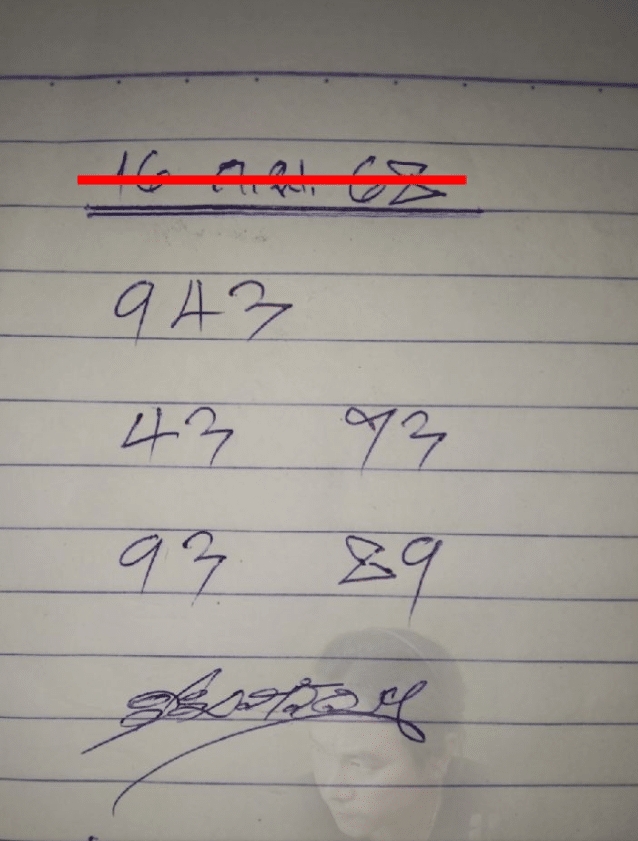 16 ก.ย. 68
943
43 93
93 89